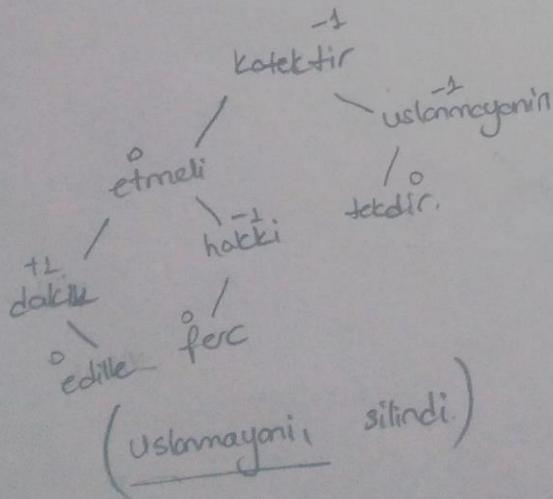 -1
kötektir
-1
uslanmayanin
0
etmeli
0
tekdir.
-1
hakki
+1
0
ferc
0
edille
(uslanmayani, silindi.)